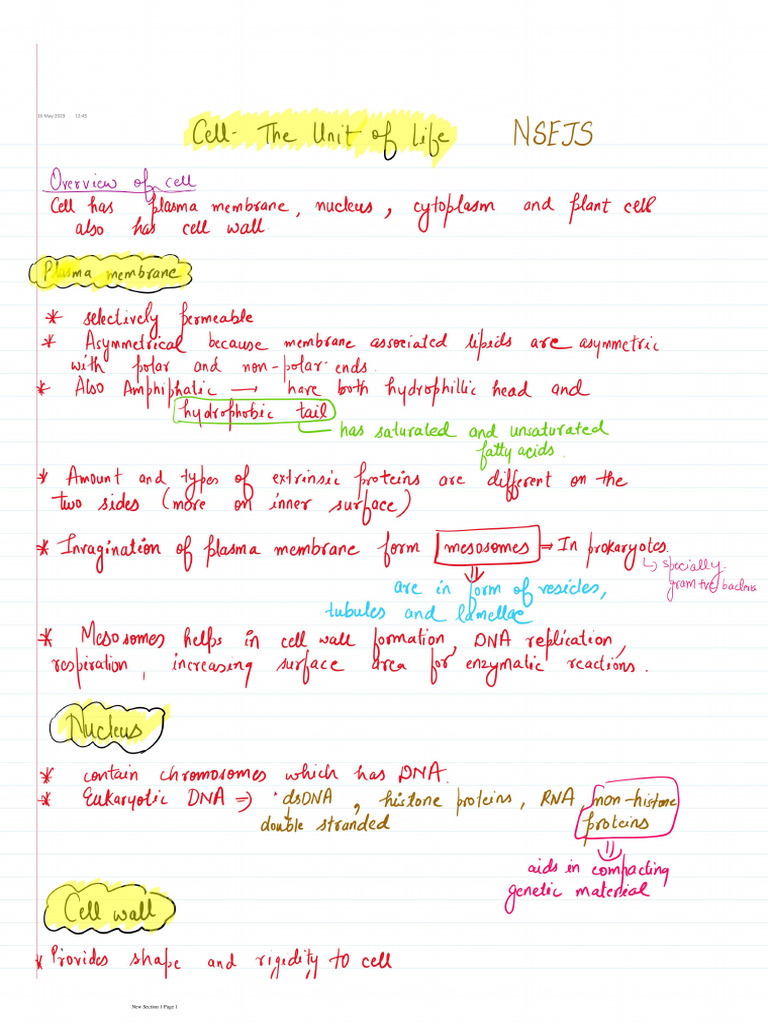 16 May 2023 12:45
Cell- The Unit of Life NSEJS
Overview of cell
Cell has plasma membrane, nucleus, cytoplasm and plant cell
also has cell wall.
Plasma membrane
* selectively permeable
* Asymmetrical because membrane associated lipids are asymmetric
with polar and non-polar ends.
* Also Amphiphatic → have both hydrophillic head and
hydrophobic tail
has saturated and unsaturated
fatty acids.
* Amount and types of extrinsic proteins are different on the
two sides (more on inner surface)
* Invagination of plasma membrane form mesosomes ⇒ In prokaryotes.
↳ specially
gram +ve bacteria
are in form of vesicles,
tubules and lamellae
* Mesosomes helps in cell wall formation, DNA replication,
respiration, increasing surface area for enzymatic reactions.
Nucleus
* contain chromosomes which has DNA.
* Eukaryotic DNA ⇒ dsDNA, histone proteins, RNA, non-histone
proteins
double stranded
aids in compacting
genetic material
Cell wall
* Provides shape and rigedity to cell
New Section 1 Page 1